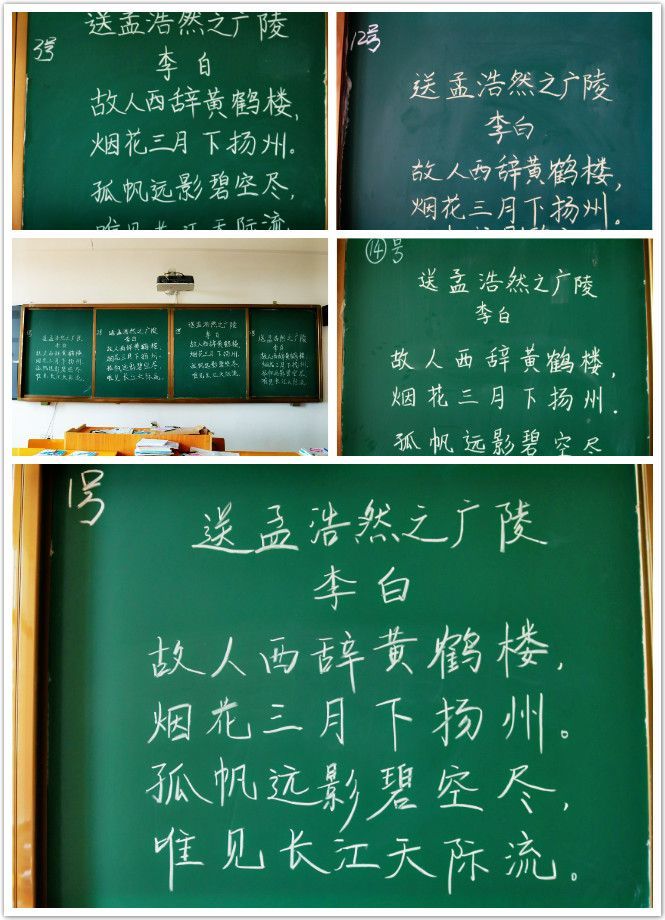 3号
送孟浩然之广陵
李白
故人西辞黄鹤楼,
烟花三月下扬州。
孤帆远影碧空尽,
唯见长江天际流
12号
送孟浩然之广陵
李白
故人西辞黄鹤楼,
烟花三月下扬州.
送孟浩然之广陵
李白
故人西辞黄鹤楼
烟花三月下扬州
孤帆远影碧空尽
唯见长江天际流
送孟浩然之广陵
李白
故人西辞黄鹤楼,
烟花三月下扬州.
孤帆远影碧空尽,
唯见长江天际流.
送孟浩然之广陵
李白
故人西辞黄鹤楼,
烟花三月下扬州。
孤帆远影碧空尽,
唯见长江天际流.
送孟浩然之广陵
李白
故人西辞黄鹤楼,
烟花三月下扬州.
孤帆远影碧空尽,
唯见长江天际流.
14号
送孟浩然之广陵
李白
故人西辞黄鹤楼,
烟花三月下扬州.
孤帆远影碧空尽
1号
送孟浩然之广陵
李白
故人西辞黄鹤楼,
烟花三月下扬州。
孤帆远影碧空尽,
唯见长江天际流。